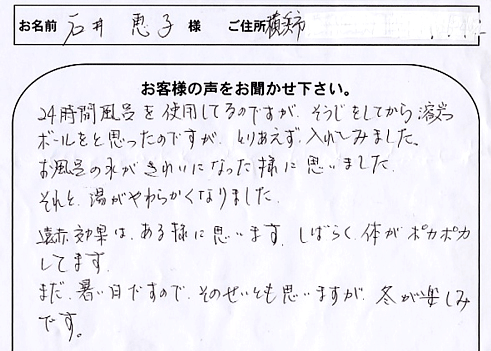 お名前 石井 恵子 様 ご住所 横浜市
お客様の声をお聞かせ下さい。
24時間風呂を使用してるのですが、そうじをしてから溶岩
ボールをと思ったのですが、とりあえず、入れてみました。
お風呂の水がきれいになった様に思いました。
それと、湯がやわらかくなりました。
遠赤効果は、ある様に思います。しばらく、体がポカポカ
してます。
まだ、暑い日ですので、そのせいとも思いますが、冬が楽しみ
です。